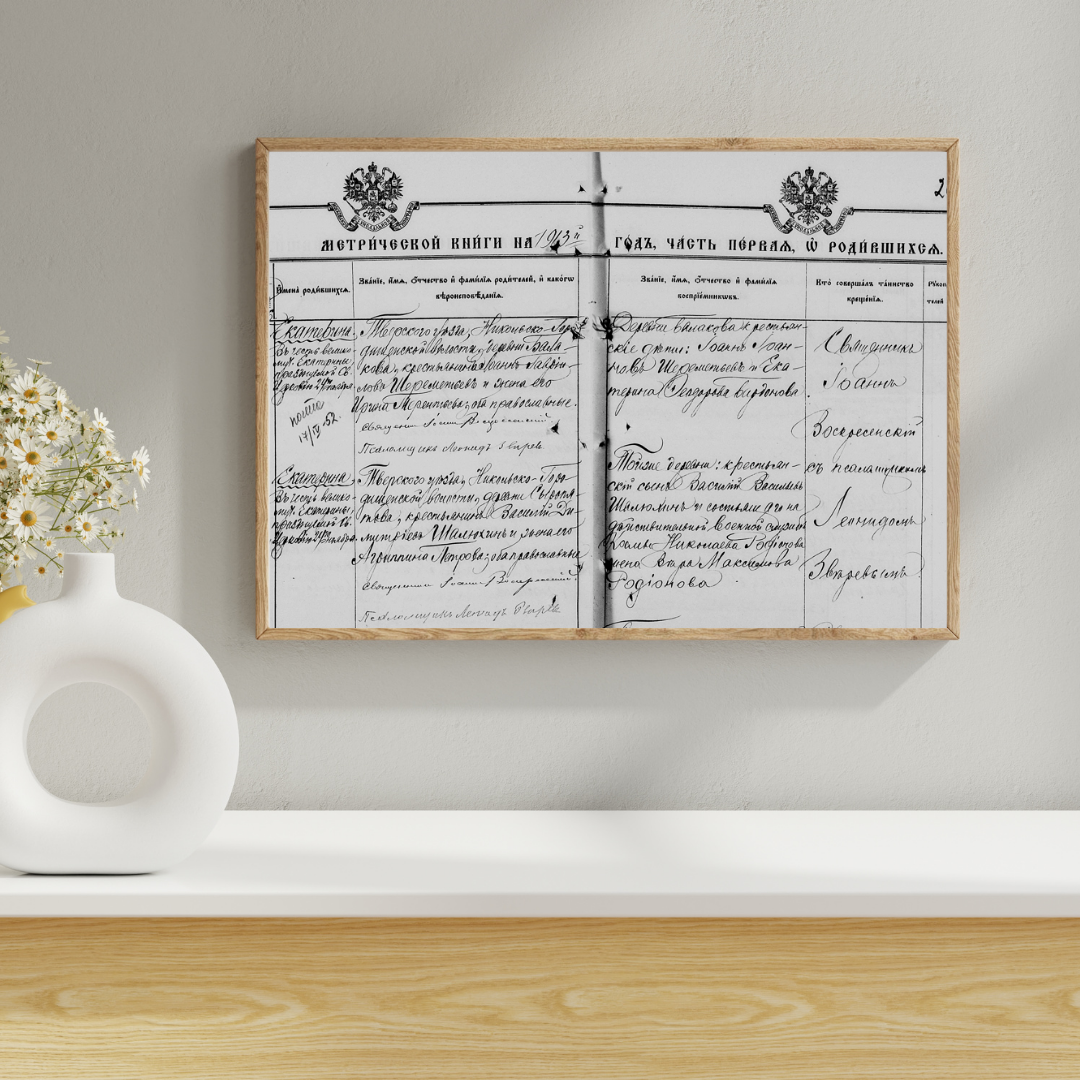 2
МЕТРИ́ЧЕСКОЙ КНИ́ГИ НА 1913й ГО́ДЪ, ЧА́СТЬ ПЕ́РВАЯ, Ѡ РОДИ́ВШИХСЯ.
Имена родившихся.
Зва́нїе, и́мя, ѻ́тчество и҆ фами́лїа роди́телей, и҆ како́гѡ
вѣроисповѣ́данїя.
Зва́нїе, и́мя, ѻ́тчество и҆ фами́лїа
воспрїе́мникѡвъ.
Кто̀ соверша́лъ та́инство
креще́нїя.
Екатерина
Въ честь велико-
муч. Екатерины
празднуемой Св.
Церковью 24 Ноября
17/IV 52.
Тверского уѣзда, Никольско-Горо-
дищенской волости, деревни Вала-
кова, крестьянинъ Іоаннъ Гаврі-
ловъ Шереметьевъ и жена его
Ирина Терентьева, оба православные.
Священникъ Іоаннъ Воскресенскій
Псаломщикъ Леонидъ Звѣревъ
Деревни Валакова крестьян-
скіе дѣти: Іоаннъ Іоан-
новъ Шереметьевъ и Ека-
терина Ѳеодорова
Священникъ
Іоаннъ
Воскресенскій
съ псаломщикомъ
Леонидомъ
Звѣревымъ
Екатерина
Въ честь велико-
муч. Екатерины
празднуемой Св.
Церковью 24 Ноября
Тверского уѣзда, Никольско-Горо-
дищенской волости, деревни
крестьянинъ Василій Ди-
митріевъ Шалюхинъ и жена его
Агриппина Петрова, оба православные
Священникъ Іоаннъ Воскресенскій
Псаломщикъ Леонидъ Звѣревъ
Тойже деревни: крестьян-
скій сынъ Василій Васильевъ
Шалюхинъ и
дѣйствительной военной службѣ
Николаева
жена Вѣра Максимова
Родіонова